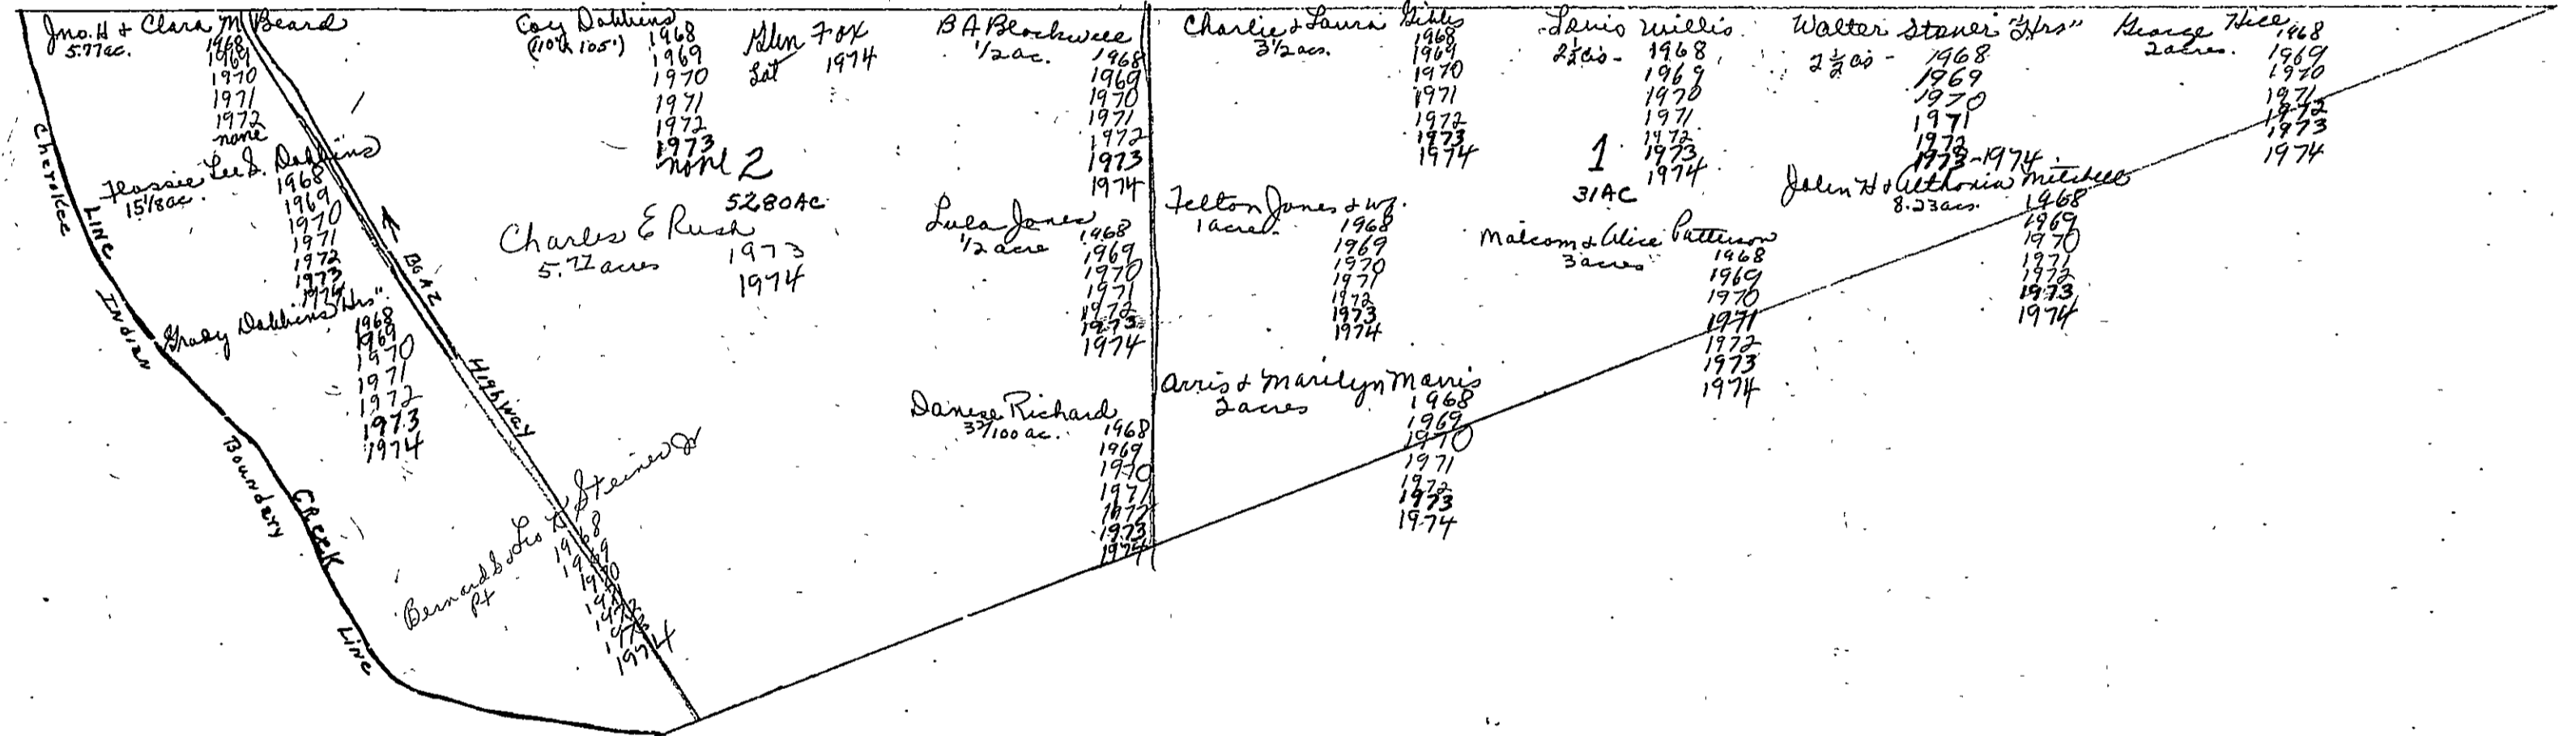 Jno. H & Clara M Beard
5.77ac.
1968
1969
1970
1971
1972
none
Flossie Lee S. Dobbins
15 1/8 ac.
1968
1969
1970
1971
1972
1973
1974
Grady Dobbins "Hrs"
1968
1969
1970
1971
1972
1973
1974
Cherokee
Line
Indian
Boundary
Creek
Line
BOAZ
Highway
Bernard S & Leo Steiner Jr
Pt
1968
1969
1970
1971
1972
1973
1974
Coy Dobbins
(110' x 105')
1968
1969
1970
1971
1972
1973
none
Glen Fox
Lot
1974
2
5280AC
Charles E Rush
5.77 acres
1973
1974
B A Blackwell
1/2 ac.
1968
1969
1970
1971
1972
1973
1974
Lula Jones
1/2 acre
1968
1969
1970
1971
1972
1973
1974
Danese Richard
37/100 ac.
1968
1969
1970
1971
1972
1973
1974
Charlie & Laura Gibbs
3 1/2 acs.
1968
1969
1970
1971
1972
1973
1974
Felton Jones & wf.
1 acre
1968
1969
1970
1971
1972
1973
1974
Arris & Marilyn Morris
2 acres
1968
1969
1970
1971
1972
1973
1974
Louis Willis
2 1/2 acs -
1968
1969
1970
1971
1972
1973
1974
1
31AC
Malcom & Alice Patterson
3 acres
1968
1969
1970
1971
1972
1973
1974
Walter Stoner "Hrs"
2 1/2 acs -
1968
1969
1970
1971
1972
1973-1974
John H & Althonia Mitchell
8.23acs.
1968
1969
1970
1971
1972
1973
1974
George Hice
2 acres.
1968
1969
1970
1971
1972
1973
1974